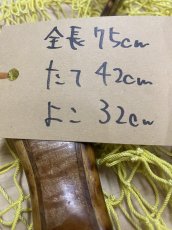 全長 75cm
たて 42cm
よこ 32cm